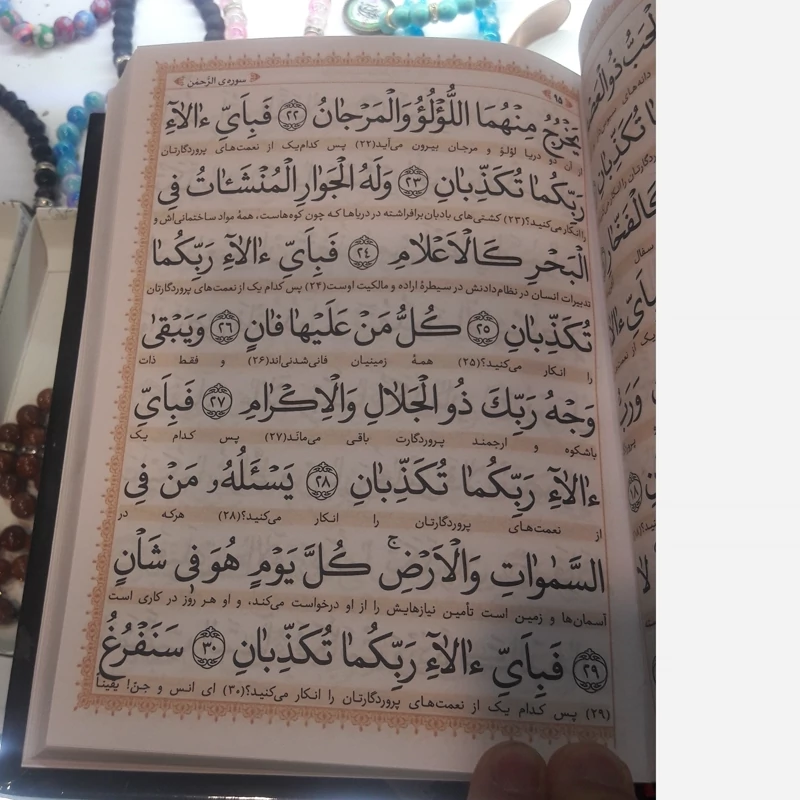 سوره‌ی الرَّحمٰن
۱۵
يَخْرُجُ مِنْهُمَا اللُّؤْلُؤُ وَالْمَرْجٰانُ ﴿۲۲﴾ فَبِاَيِّ ءٰالٰآءِ
از آن دو دریا لؤلؤ و مرجان بیرون می‌آید(۲۲) پس کدام‌یک از نعمت‌های پروردگارتان
رَبِّكُمٰا تُكَذِّبٰانِ ﴿۲۳﴾ وَلَهُ الْجَوٰارِ الْمُنْشَـٔاتُ فِي
را انکار می‌کنید؟(۲۳) کشتی‌های بادبان برافراشته در دریاها که چون کوه‌هاست، همهٔ مواد ساختمانی‌اش و
الْبَحْرِ كَالْاَعْلٰامِ ﴿۲۴﴾ فَبِاَيِّ ءٰالٰآءِ رَبِّكُمٰا
تدبیرات انسان در نظام‌دادنش در سیطرهٔ اراده و مالکیت اوست(۲۴) پس کدام یک از نعمت‌های پروردگارتان
تُكَذِّبٰانِ ﴿۲۵﴾ كُلُّ مَنْ عَلَيْهٰا فٰانٍ ﴿۲۶﴾ وَيَبْقٰى
را انکار می‌کنید؟(۲۵) همهٔ زمینیان فانی‌شدنی‌اند(۲۶) و فقط ذات
وَجْهُ رَبِّكَ ذُو الْجَلٰالِ وَالْاِكْرٰامِ ﴿۲۷﴾ فَبِاَيِّ
باشکوه و ارجمند پروردگارت باقی می‌ماند(۲۷) پس کدام یک
ءٰالٰآءِ رَبِّكُمٰا تُكَذِّبٰانِ ﴿۲۸﴾ يَسْـَٔلُهُۥ مَنْ فِي
از نعمت‌های پروردگارتان را انکار می‌کنید؟(۲۸) هرکه در
السَّمٰوٰاتِ وَالْاَرْضِ ۚ كُلَّ يَوْمٍ هُوَ فِي شَأْنٍ
آسمان‌ها و زمین است تأمین نیازهایش را از او درخواست می‌کند، و او هر روز در کاری است
﴿۲۹﴾ فَبِاَيِّ ءٰالٰآءِ رَبِّكُمٰا تُكَذِّبٰانِ ﴿۳۰﴾ سَنَفْرُغُ
(۲۹) پس کدام یک از نعمت‌های پروردگارتان را انکار می‌کنید؟(۳۰) ای انس و جن! یقیناً